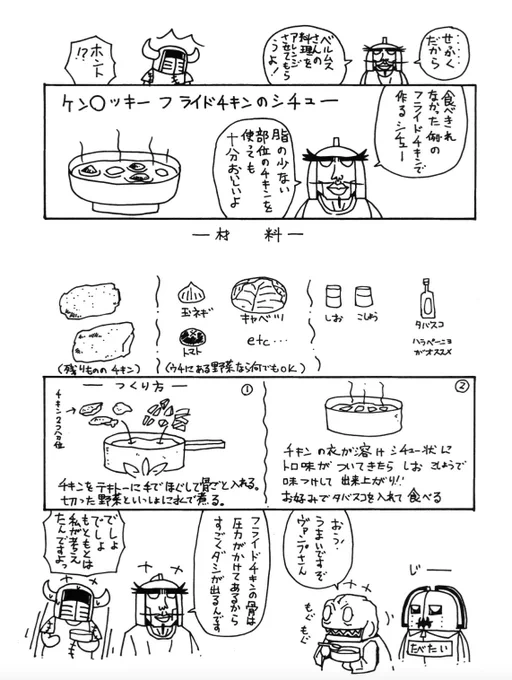 せっかく
だから
ベルムス
さんの
料理を
アレンジ
させてもら
うよ!
ホント
!?
ケン〇ッキーフライドチキンのシチュー
食べきれ
なかった例の
フライドチキンで
作るシチュー
脂の少ない
部位のチキンを
使っても
十分おいしいよ
―材 料―
(残りもののチキン)
玉ネギ
キャベツ
トマト
etc…
(ウチにある野菜なら何でもOK)
しお
こしょう
タバスコ
ハラペーニョ
がオススメ
―つくり方―
①
チキン2つ分位
チキンをテキトーに手でほぐして骨ごと入れる。
切った野菜といっしょに水で煮る。
②
チキンの衣が溶けシチュー状に
トロ味がついてきたら しお こしょうで
味つけして 出来上がり!!
お好みでタバスコを入れて食べる
フライドチキンの骨は
圧力がかけてあるから
すごくダシが出るんです
でしょ
でしょ
もともとは
私が考え
たんですよっ
おう!
うまいですぞ
ヴァンプさん
もぐ
もぐ
じー
たべたい